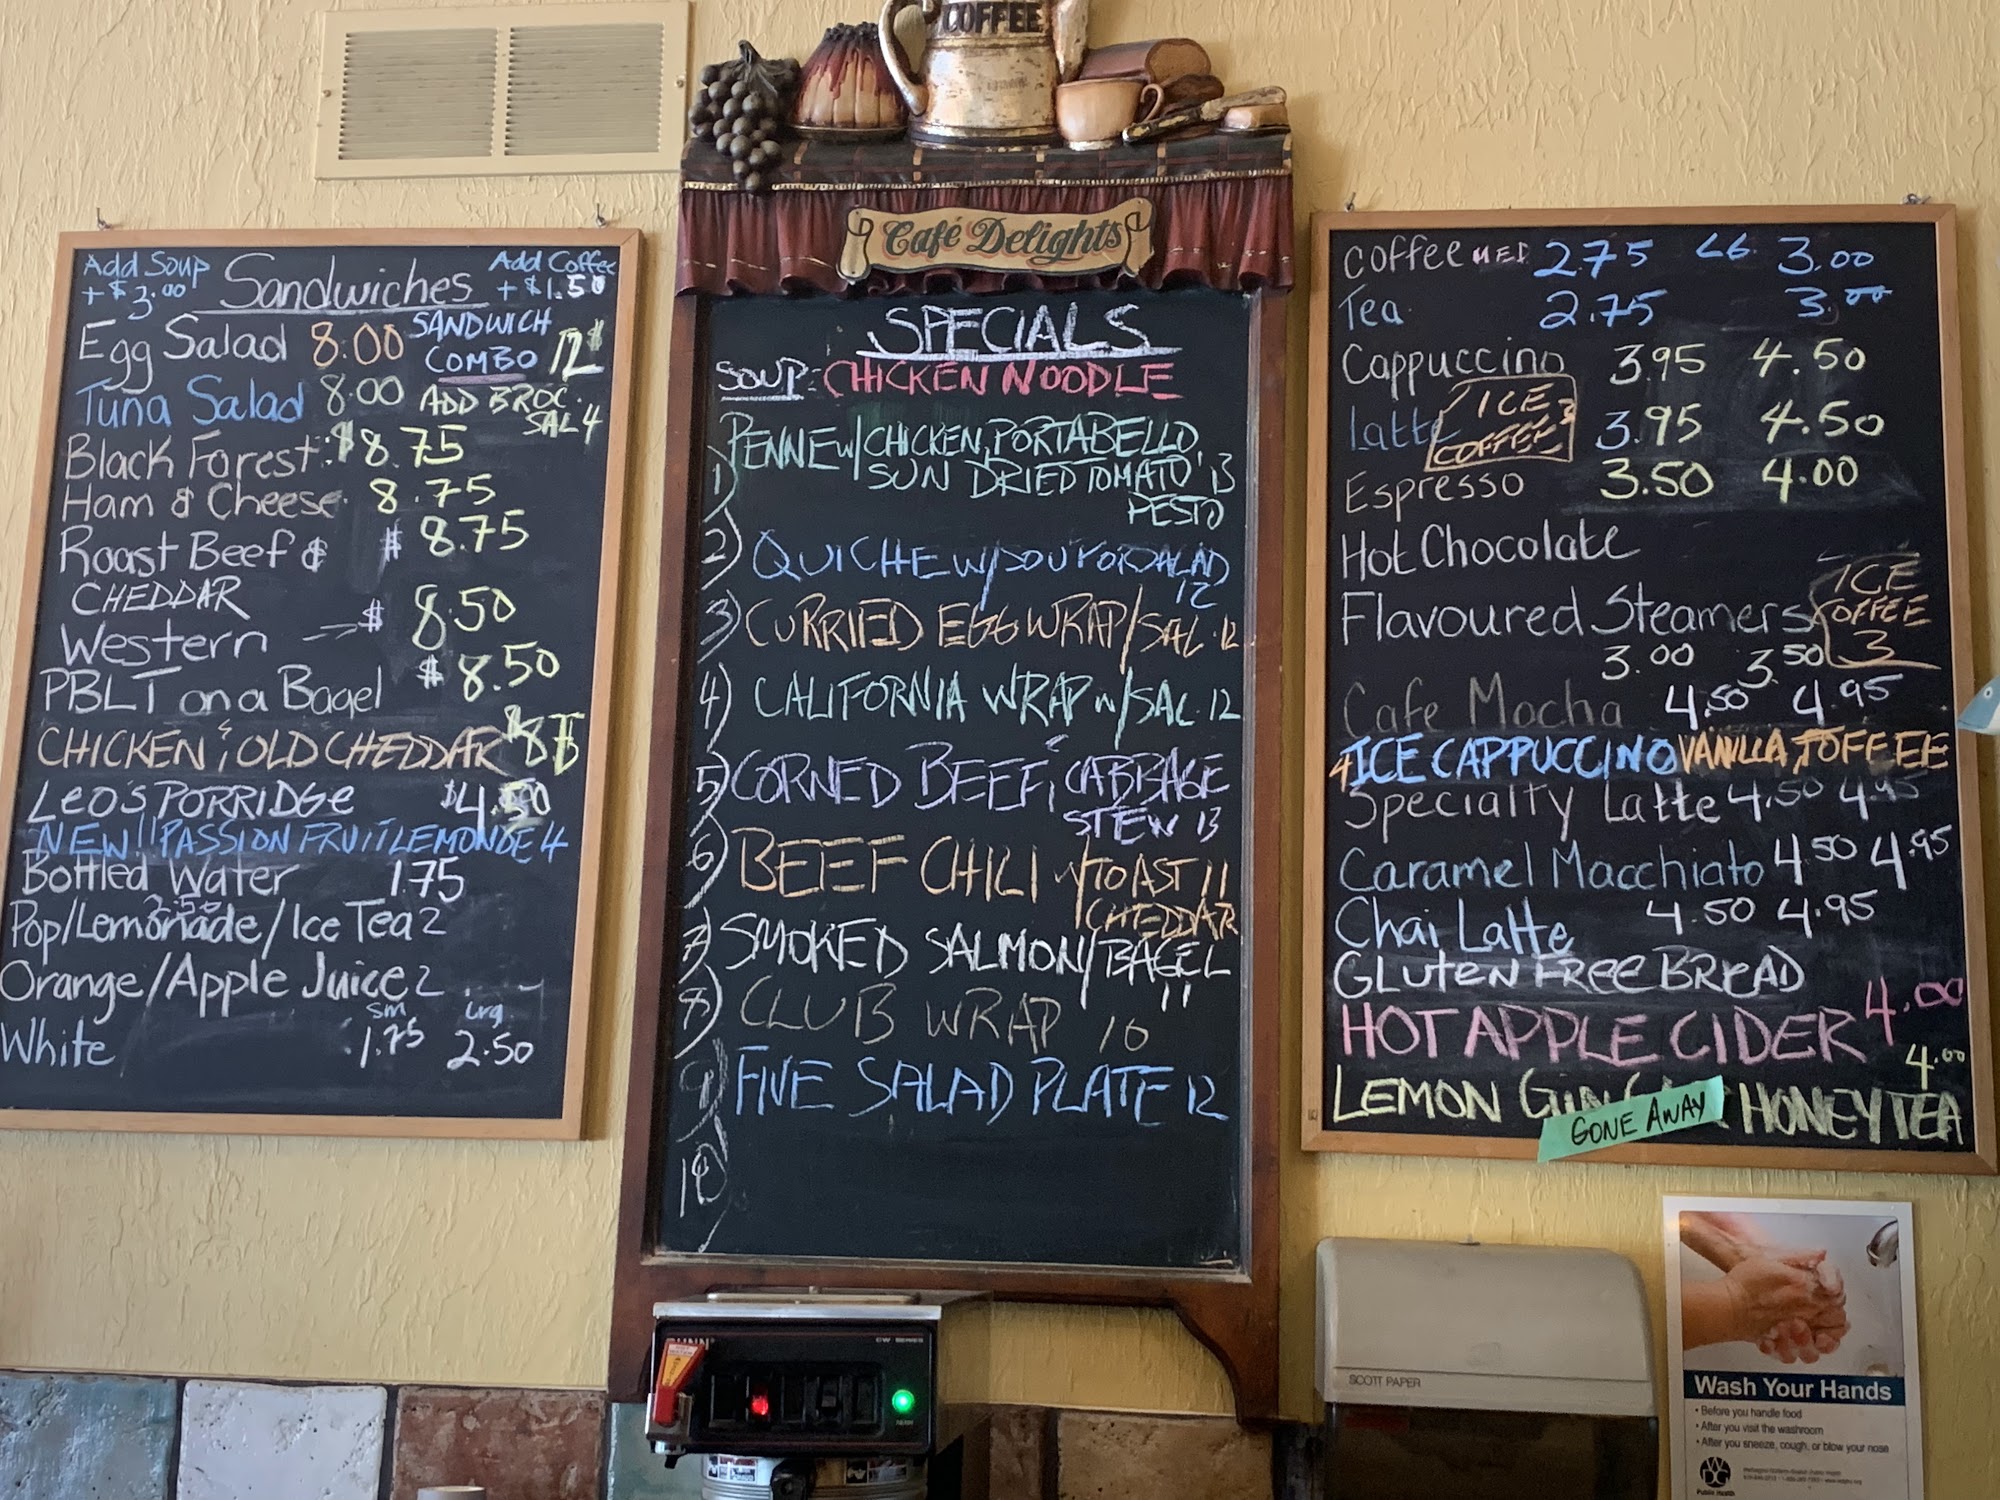 COFFEE
Café Delights
Add Soup
+ $3.00
Sandwiches
Add Coffee
+ $1.50
Egg Salad 8.00
SANDWICH
COMBO 12$
Tuna Salad 8.00
ADD BROC.
SAL 4
Black Forest: $8.75
Ham & Cheese 8.75
Roast Beef & $ 8.75
CHEDDAR
Western $ 8.50
PBLT on a Bagel $8.50
CHICKEN & OLD CHEDDAR
LEO'S PORRIDGE $4.50
NEW!! PASSION FRUIT LEMONDE 4
Bottled Water 1.75
2.50
Pop/Lemonade/Ice Tea 2
Orange/Apple Juice 2
sm Lrg
White 1.75 2.50
SPECIALS
SOUP: CHICKEN NOODLE
1) PENNE w/ CHICKEN, PORTABELLO,
SUN DRIED TOMATO, 13
PESTO
2) QUICHE W/ SOUP OR SALAD
12
3) CURRIED EGG WRAP/SAL. 12
4) CALIFORNIA WRAP w/ SAL. 12
5) CORNED BEEF & CABBAGE
STEW 13
6) BEEF CHILI w/ TOAST 11
CHEDDAR
7) SMOKED SALMON/BAGEL
11
8) CLUB WRAP 10
9) FIVE SALAD PLATE 12
10)
coffee MED 2.75 LG. 3.00
Tea 2.75 3.00
Cappuccino 3.95 4.50
Latte 3.95 4.50
ICE
COFFEE 3
Espresso 3.50 4.00
Hot Chocolate
Flavoured Steamers
3.00 3.50
ICE
COFFEE
3
Cafe Mocha 4.50 4.95
4 ICE CAPPUCCINO VANILLA, TOFFEE
Specialty Latte 4.50 4.95
Caramel Macchiato 4.50 4.95
Chai Latte 4.50 4.95
GLUTEN FREE BREAD
HOT APPLE CIDER 4.00
4.00
LEMON HONEY TEA
GONE AWAY
BUNN
CW SERIES
SCOTT PAPER
Wash Your Hands
• Before you handle food
• After you visit the washroom
• After you sneeze, cough, or blow your nose
WDG
Public Health